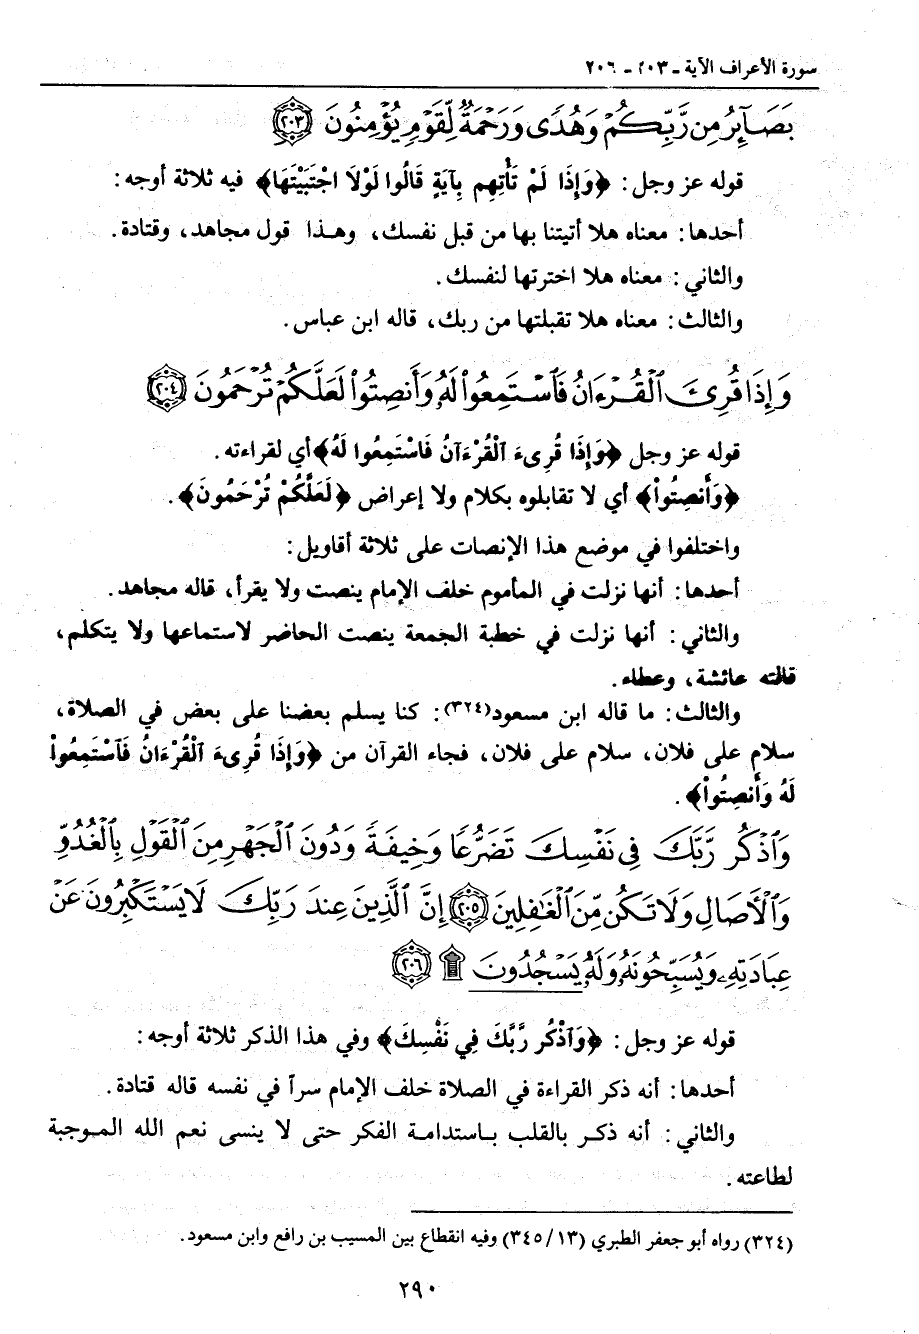 سورة الأعراف الآية - ٢٠٣ - ٢٠٦
بَصَآئِرُ مِن رَّبِّكُمْ وَهُدًى وَرَحْمَةٌ لِّقَوْمٍ يُؤْمِنُونَ ﴿٢٠٣﴾
قوله عز وجل: ﴿وَإِذَا لَمْ تَأْتِهِم بِآيَةٍ قَالُوا لَوْلَا اجْتَبَيْتَهَا﴾ فيه ثلاثة أوجه:
أحدها: معناه هلا أتيتنا بها من قبل نفسك، وهذا قول مجاهد، وقتادة.
والثاني: معناه هلا اخترتها لنفسك.
والثالث: معناه هلا تقبلتها من ربك، قاله ابن عباس.
وَإِذَا قُرِئَ ٱلْقُرْءَانُ فَٱسْتَمِعُوا۟ لَهُۥ وَأَنصِتُوا۟ لَعَلَّكُمْ تُرْحَمُونَ ﴿٢٠٤﴾
قوله عز وجل ﴿وَإِذَا قُرِىءَ ٱلْقُرْءَآنُ فَاسْتَمِعُوا لَهُ﴾ أي لقراءته.
﴿وَأَنصِتُواْ﴾ أي لا تقابلوه بكلام ولا إعراض ﴿لَعَلَّكُمْ تُرْحَمُونَ﴾.
واختلفوا في موضع هذا الإنصات على ثلاثة أقاويل:
أحدها: أنها نزلت في المأموم خلف الإمام ينصت ولا يقرأ، قاله مجاهد.
والثاني: أنها نزلت في خطبة الجمعة ينصت الحاضر لاستماعها ولا يتكلم،
قالته عائشة، وعطاء.
والثالث: ما قاله ابن مسعود(٣٢٤): كنا يسلم بعضنا على بعض في الصلاة،
سلام على فلان، سلام على فلان، فجاء القرآن من ﴿وَإِذَا قُرِىءَ ٱلْقُرْءَانُ فَٱسْتَمِعُواْ
لَهُ وَأَنصِتُواْ﴾.
وَٱذْكُر رَّبَّكَ فِي نَفْسِكَ تَضَرُّعًا وَخِيفَةً وَدُونَ ٱلْجَهْرِ مِنَ ٱلْقَوْلِ بِٱلْغُدُوِّ
وَٱلْأَصَالِ وَلَا تَكُن مِّنَ ٱلْغَٰفِلِينَ ﴿٢٠٥﴾ إِنَّ ٱلَّذِينَ عِندَ رَبِّكَ لَا يَسْتَكْبِرُونَ عَنْ
عِبَادَتِهِۦ وَيُسَبِّحُونَهُۥ وَلَهُۥ يَسْجُدُونَ ۩ ﴿٢٠٦﴾
قوله عز وجل: ﴿وَآذْكُر رَّبَّكَ فِي نَفْسِكَ﴾ وفي هذا الذكر ثلاثة أوجه:
أحدها: أنه ذكر القراءة في الصلاة خلف الإمام سراً في نفسه قاله قتادة.
والثاني: أنه ذكر بالقلب باستدامة الفكر حتى لا ينسى نعم الله الموجبة
لطاعته.
(٣٢٤) رواه أبو جعفر الطبري (٣٤٥/١٣) وفيه انقطاع بين المسيب بن رافع وابن مسعود.
٢٩٠